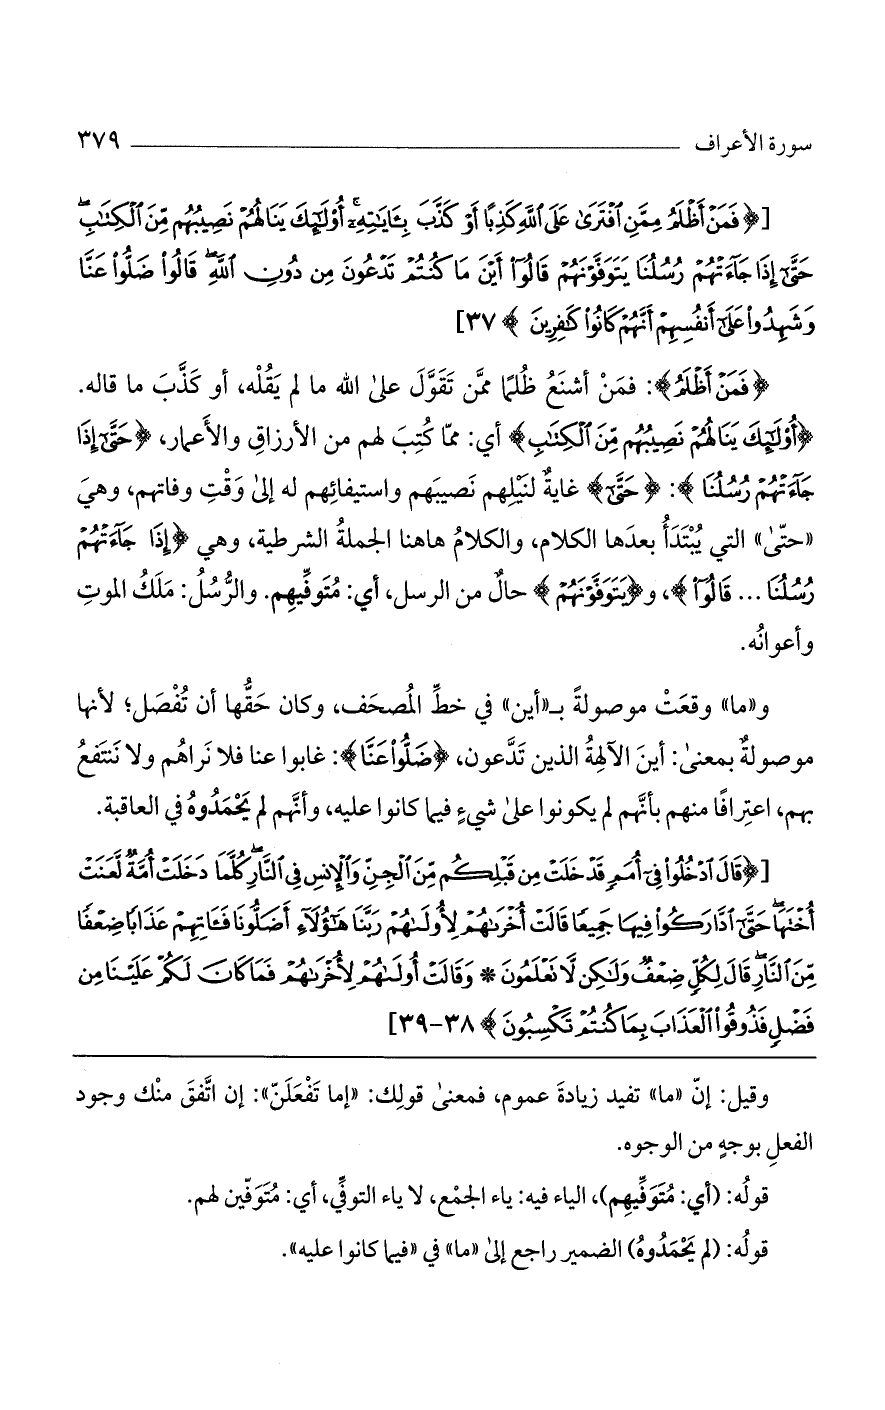 سورة الأعراف ٣٧٩
[﴿فَمَنْ أَظْلَمُ مِمَّنِ ٱفْتَرَىٰ عَلَى ٱللَّهِ كَذِبًا أَوْ كَذَّبَ بِـَٔايَـٰتِهِۦٓ ۚ أُو۟لَـٰٓئِكَ يَنَالُهُمْ نَصِيبُهُم مِّنَ ٱلْكِتَـٰبِ ۖ
حَتَّىٰٓ إِذَا جَآءَتْهُمْ رُسُلُنَا يَتَوَفَّوْنَهُمْ قَالُوٓا۟ أَيْنَ مَا كُنتُمْ تَدْعُونَ مِن دُونِ ٱللَّهِ ۖ قَالُوا۟ ضَلُّوا۟ عَنَّا
وَشَهِدُوا۟ عَلَىٰٓ أَنفُسِهِمْ أَنَّهُمْ كَانُوا۟ كَـٰفِرِينَ﴾ ٣٧]
﴿فَمَنْ أَظْلَمُ﴾: فمَنْ أشنَعُ ظُلمًا ممَّن تَقَوَّلَ علىٰ الله ما لم يَقُلْه، أو كَذَّبَ ما قاله.
﴿أُو۟لَـٰٓئِكَ يَنَالُهُمْ نَصِيبُهُم مِّنَ ٱلْكِتَـٰبِ﴾ أي: ممّا كُتِبَ لهم من الأرزاقِ والأَعمار، ﴿حَتَّىٰٓ إِذَا
جَآءَتْهُمْ رُسُلُنَا﴾: ﴿حَتَّىٰٓ﴾ غايةٌ لنَيْلِهم نَصيبَهم واستيفائِهم له إلىٰ وَقْتِ وفاتهم، وهيَ
«حتّىٰ» التي يُبْتَدَأُ بعدَها الكلام، والكلامُ هاهنا الجملةُ الشرطية، وهي ﴿إِذَا جَآءَتْهُمْ
رُسُلُنَا ... قَالُوٓا۟﴾، و﴿يَتَوَفَّوْنَهُمْ﴾ حالٌ من الرسل، أي: مُتَوفِّيهِم. والرُّسُلُ: مَلَكُ الموتِ
وأعوانُه.
و«ما» وقعَتْ موصولةً بـ«أين» في خطِّ المُصحَف، وكان حَقُّها أن تُفْصَل؛ لأنها
موصولةٌ بمعنىٰ: أينَ الآلهةُ الذين تَدَّعون، ﴿ضَلُّوا۟ عَنَّا﴾: غابوا عنا فلا نَراهُم ولا نَنتَفعُ
بهم، اعترافًا منهم بأنَّهم لم يكونوا علىٰ شيءٍ فيما كانوا عليه، وأنَّهم لم يَحْمَدُوهُ في العاقبة.
[﴿قَالَ ٱدْخُلُوا۟ فِىٓ أُمَمٍ قَدْ خَلَتْ مِن قَبْلِكُم مِّنَ ٱلْجِنِّ وَٱلْإِنسِ فِى ٱلنَّارِ ۖ كُلَّمَا دَخَلَتْ أُمَّةٌ لَّعَنَتْ
أُخْتَهَا ۖ حَتَّىٰٓ إِذَا ٱدَّارَكُوا۟ فِيهَا جَمِيعًا قَالَتْ أُخْرَىٰهُمْ لِأُولَىٰهُمْ رَبَّنَا هَـٰٓؤُلَآءِ أَضَلُّونَا فَـَٔاتِهِمْ عَذَابًا ضِعْفًا
مِّنَ ٱلنَّارِ ۖ قَالَ لِكُلٍّ ضِعْفٌ وَلَـٰكِن لَّا نَعْلَمُونَ * وَقَالَتْ أُولَىٰهُمْ لِأُخْرَىٰهُمْ فَمَا كَانَ لَكُمْ عَلَيْنَا مِن
فَضْلٍ فَذُوقُوا۟ ٱلْعَذَابَ بِمَا كُنتُمْ تَكْسِبُونَ﴾ ٣٨-٣٩]
وقيل: إنّ «ما» تفيد زيادةَ عموم، فمعنىٰ قولِك: «إما تَفْعَلَنّ»: إن اتَّفقَ منْك وجود
الفعلِ بوجهٍ من الوجوه.
قولُه: (أي: مُتَوَفِّيهِم)، الياء فيه: ياء الجمْع، لا ياء التوفِّي، أي: مُتَوَفّين لهم.
قولُه: (لم يَحْمَدُوهُ) الضمير راجع إلىٰ «ما» في «فيما كانوا عليه».